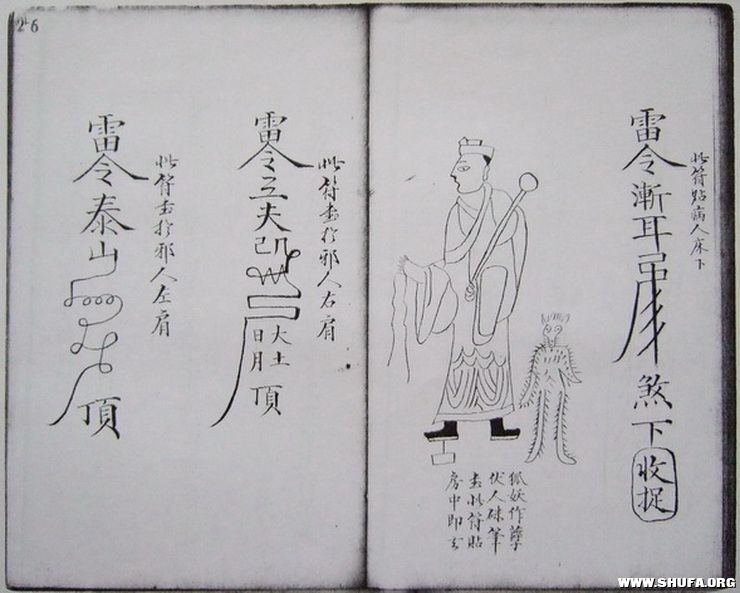 此符貼病人床下
雷令漸耳
煞下
收捉
狐妖作孽
伏人硃筆
畫此符貼
房中即去
26
此符畫於邪人右肩
雷令立夫
大土
日月
頂
此符畫於邪人左肩
雷令泰山
頂
WWW.SHUFA.ORG